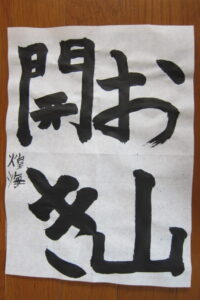 お山
開き
煌海